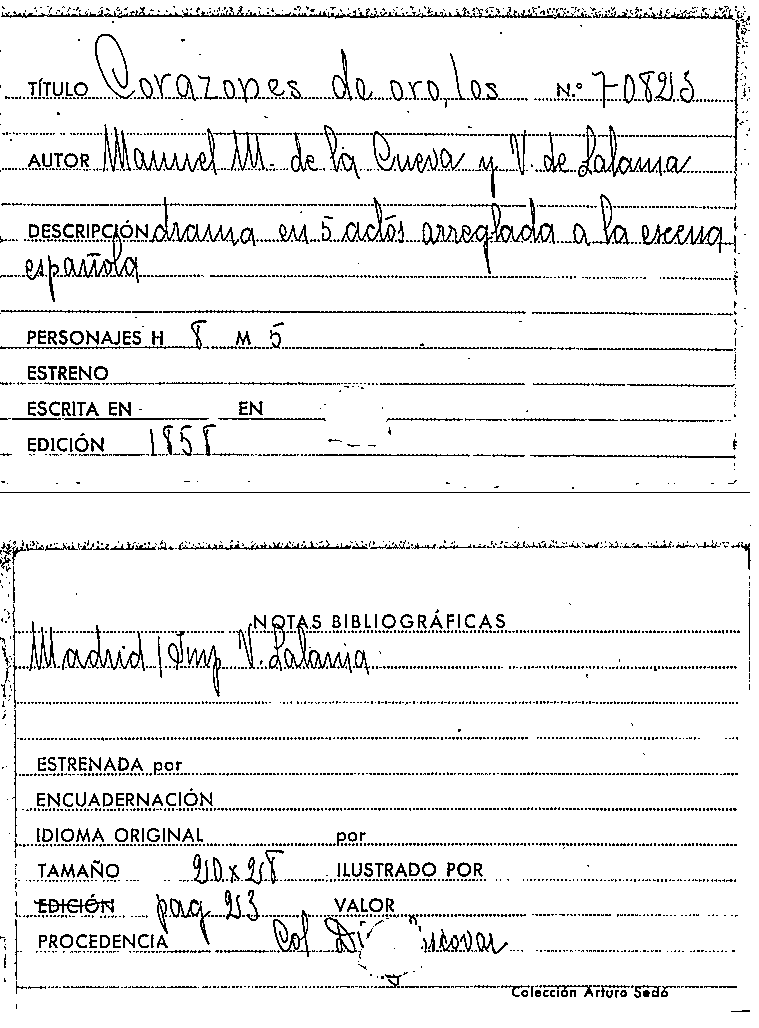 TÍTULO Corazones de oro, los N.º 7-0823
AUTOR Manuel M. de la Cueva y V. de Lalama
DESCRIPCIÓN drama en 5 actos arreglada a la escena
española
PERSONAJES H 8 M 5
ESTRENO
ESCRITA EN EN
EDICIÓN 1858
NOTAS BIBLIOGRÁFICAS
Madrid / Imp V. Lalama
ESTRENADA por
ENCUADERNACIÓN
IDIOMA ORIGINAL por
TAMAÑO 210 x 28 ILUSTRADO POR
EDICIÓN pag 23 VALOR
PROCEDENCIA Col
Colección Arturo Sedó